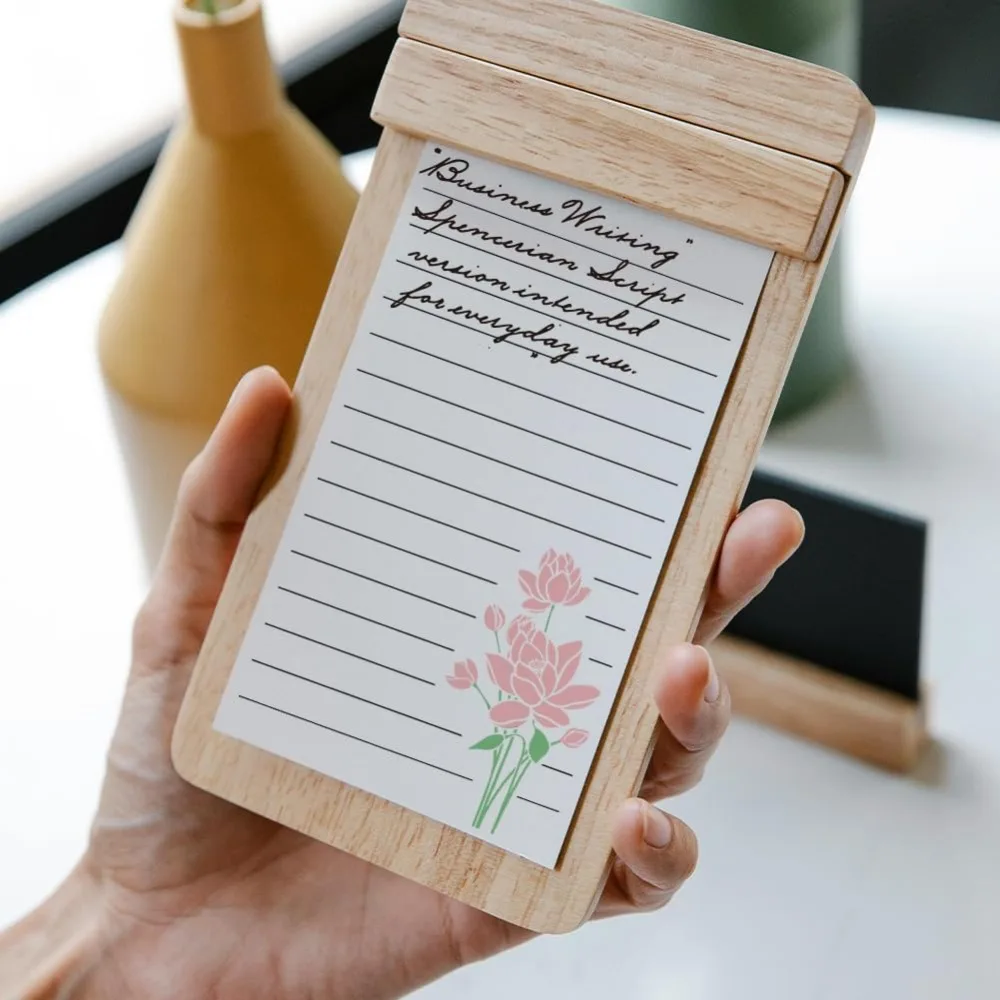 "Business Writing"
Spencerian Script
version intended
for everyday use.